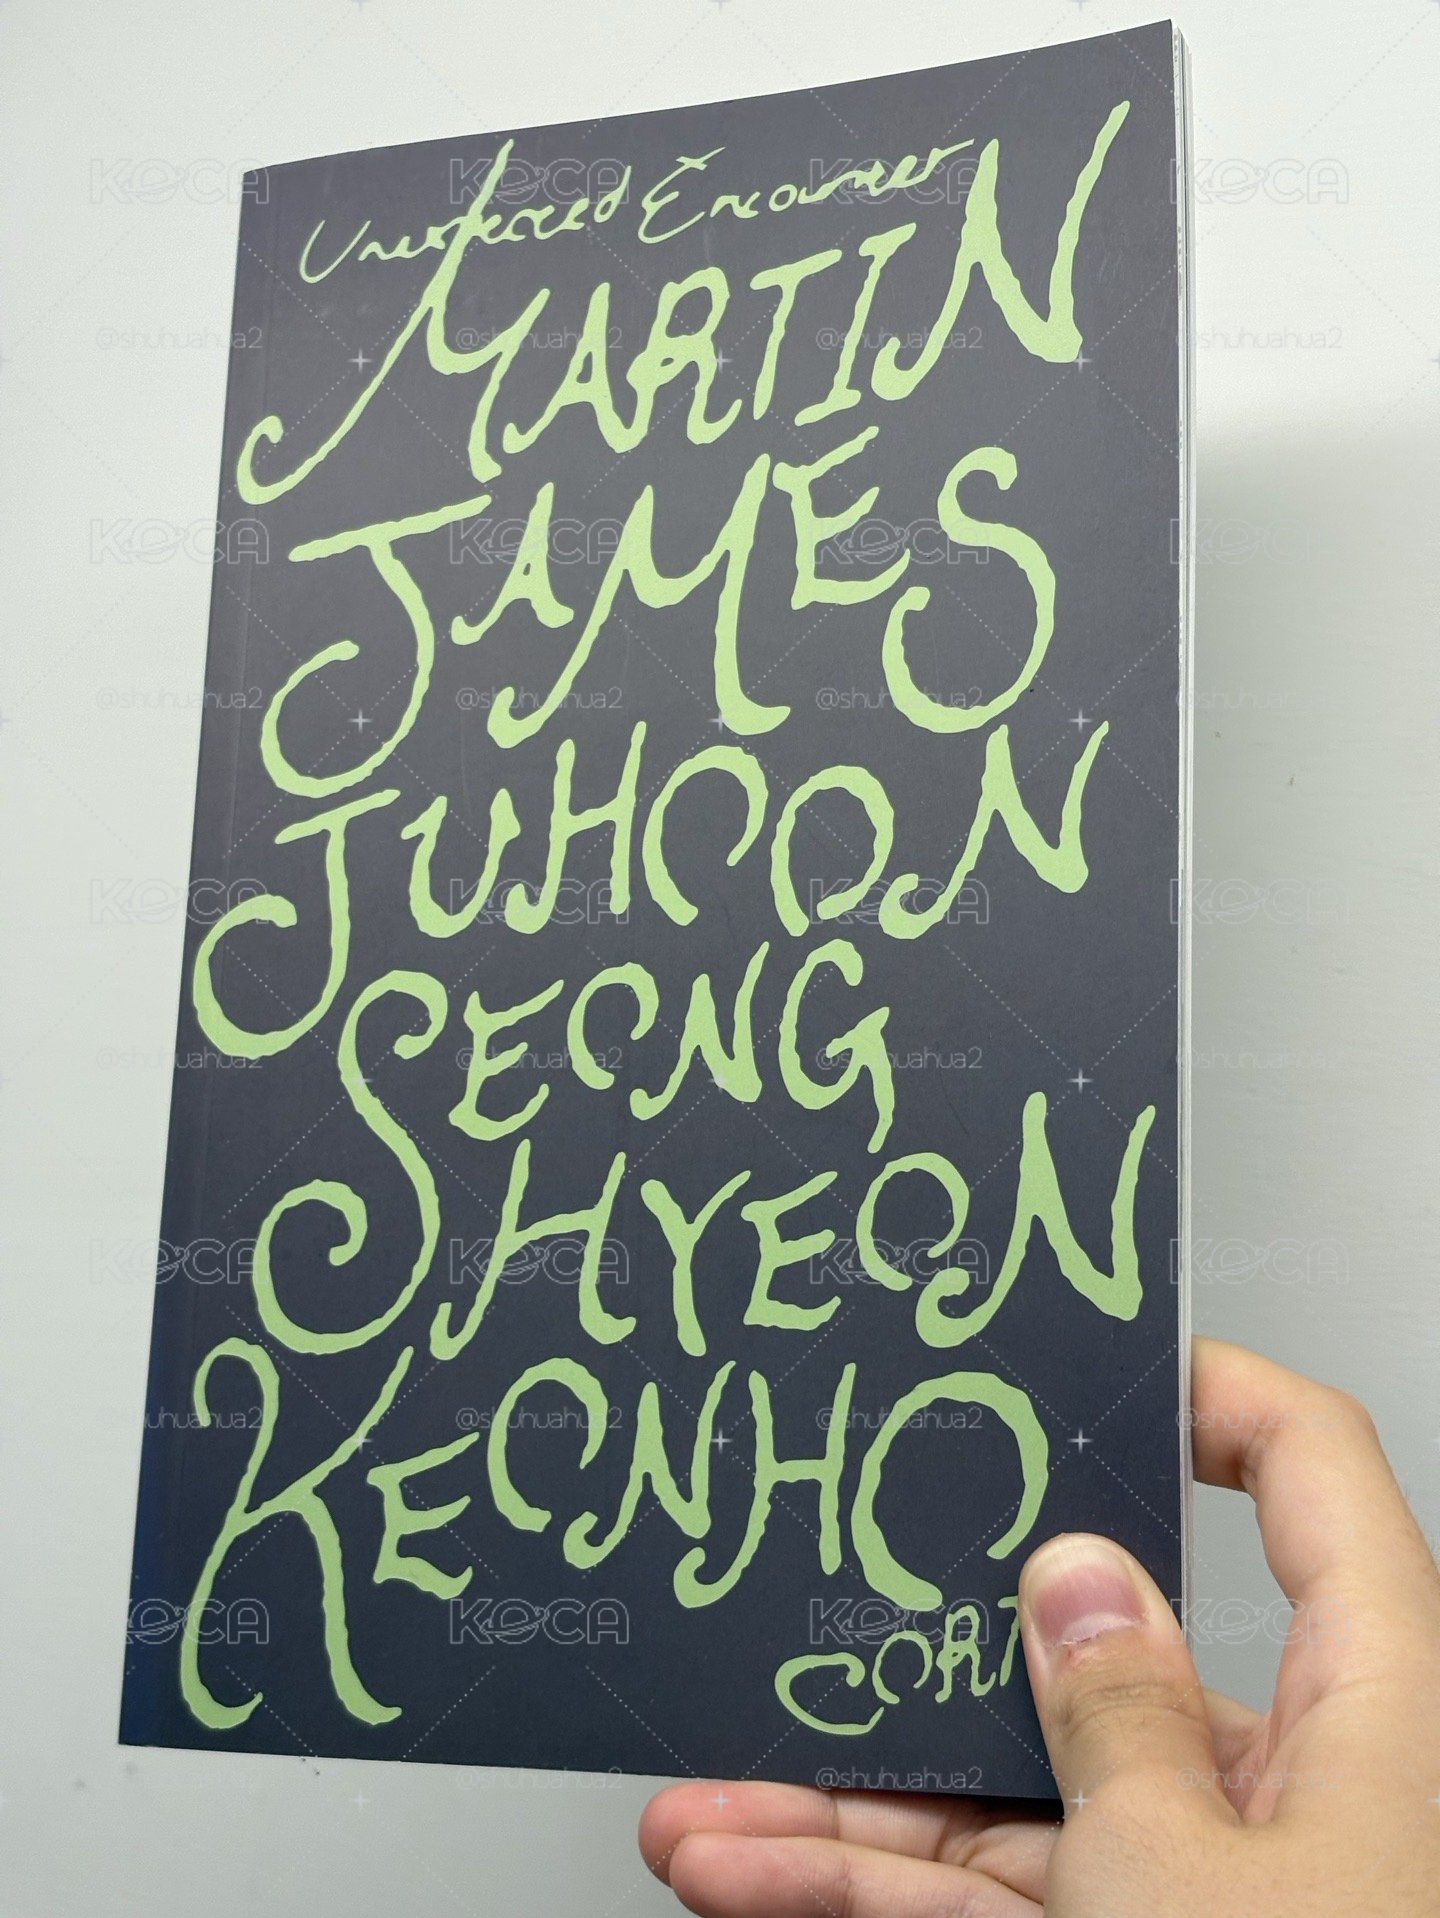 Unexpected Encounter
MARTIN
JAMES
JUHOON
SEONG
HYEON
KEONHO
CORT
KOCA
@shuhuahua2